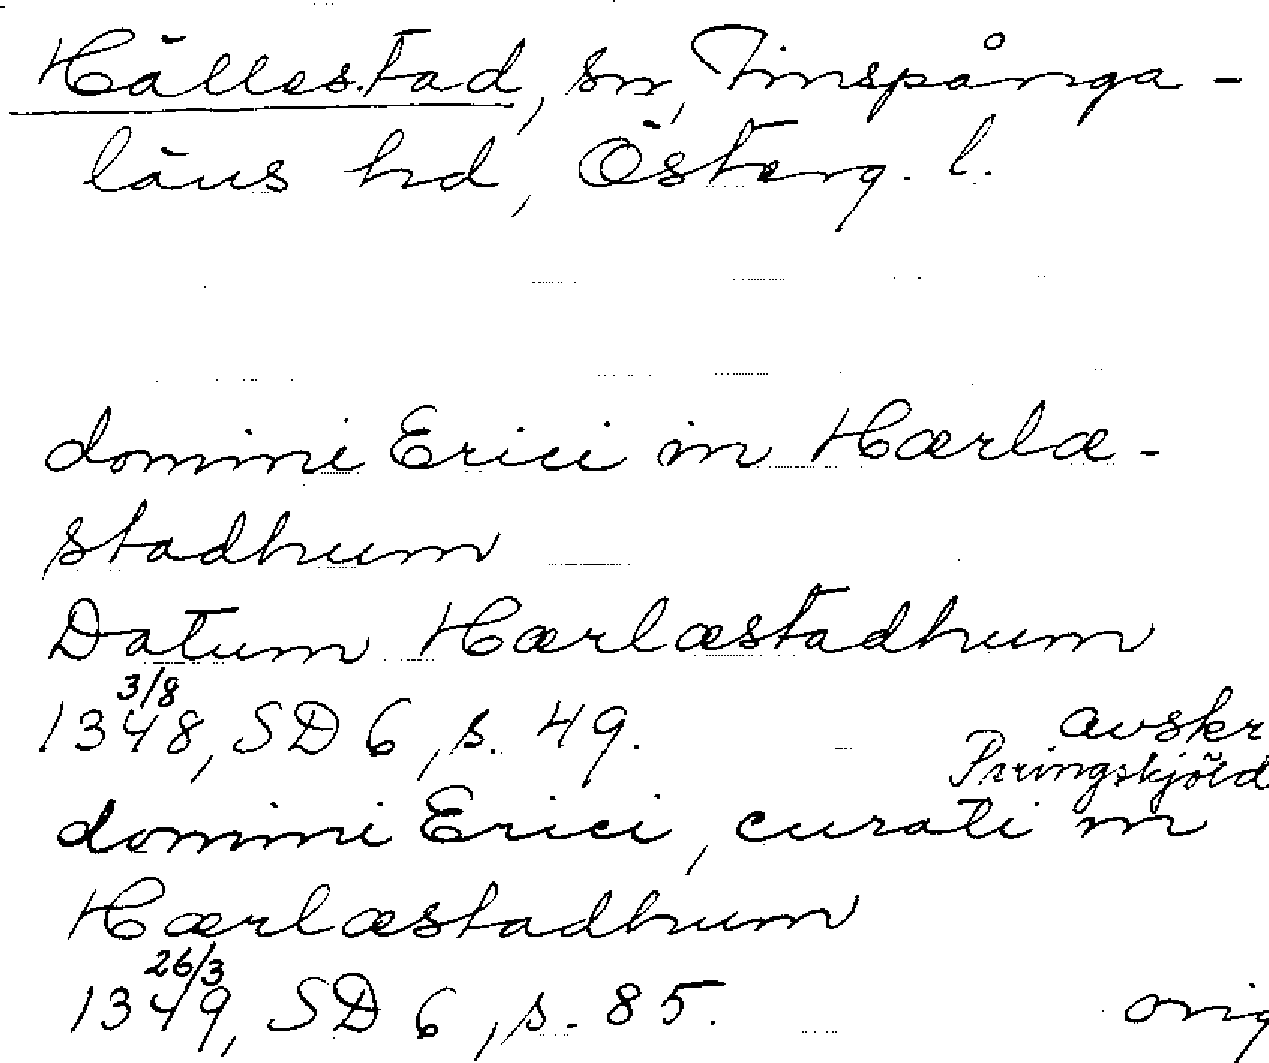 Hällestad, sn, Finspånga-
läns hd, Österg. l.
domini Erici in Hærlæ-
stadhum
Datum Hærlæstadhum
3/8
1348, SD 6, s. 49. avskr
Peringskjöld
domini Erici, curati in
Hærlæstadhum
26/3
1349, SD 6, s. 85. orig